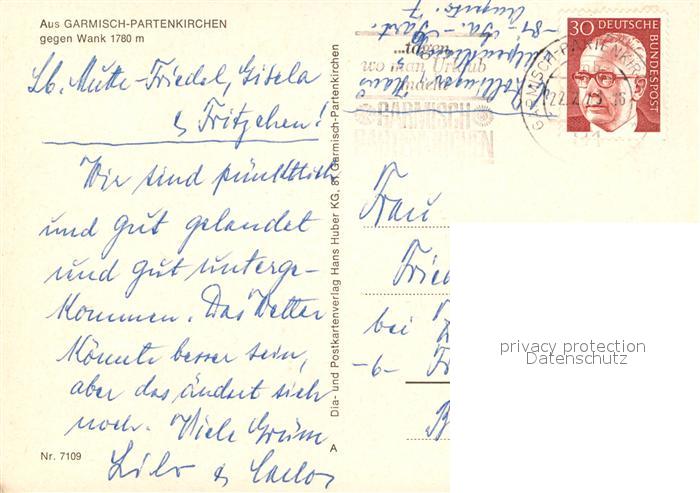 Aus GARMISCH-PARTENKIRCHEN
gegen Wank 1780 m
Lb. Mutti-Friedel, Gisela
& Fritzchen!
Wir sind pünktlich
und gut gelandet
und gut unterge-
kommen. Das Wetter
könnte besser sein,
aber das ändert sich
noch. Viele Grüße
Lilo & Carlos
Nr. 7109
A
Dia- und Postkartenverlag Hans Huber KG. 81 Garmisch-Partenkirchen
...tagen
wo man Urlaub
macht
GARMISCH
PARTENKIRCHEN
GARMISCH-PARTENKIR
30 DEUTSCHE
BUNDESPOST
Frau
Fried
bei
-6- Fr
privacy protection
Datenschutz